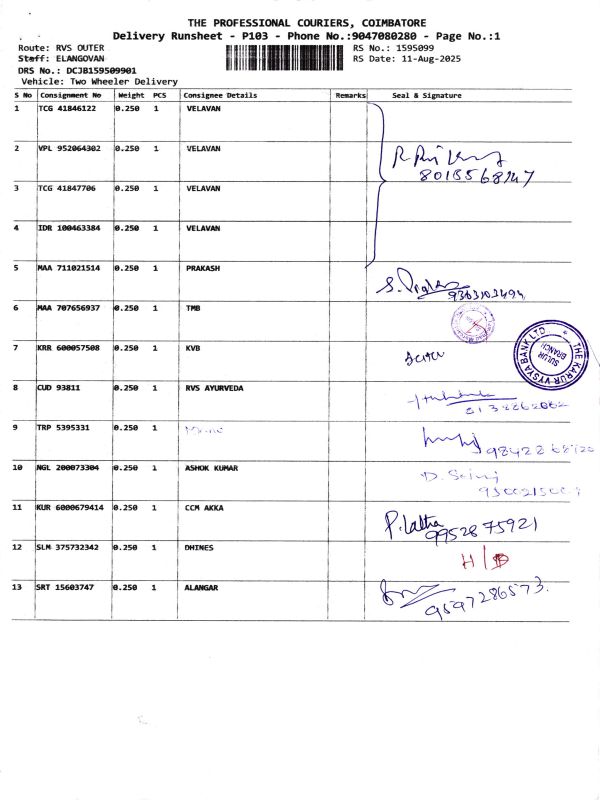 THE PROFESSIONAL COURIERS, COIMBATORE
Delivery Runsheet - P103 - Phone No.:9047080280 - Page No.:1
Route: RVS OUTER RS No.: 1595099
Staff: ELANGOVAN RS Date: 11-Aug-2025
DRS No.: DCJB159509901
Vehicle: Two Wheeler Delivery
S No Consignment No Weight PCS Consignee Details Remarks Seal & Signature
1 TCG 41846122 0.250 1 VELAVAN
2 VPL 952064302 0.250 1 VELAVAN
3 TCG 41847706 0.250 1 VELAVAN
4 IDR 100463384 0.250 1 VELAVAN
5 MAA 711021514 0.250 1 PRAKASH
9363103494
6 MAA 707656937 0.250 1 TMB
7 KRR 600057508 0.250 1 KVB
THE KARUR VYSYA BANK LTD
SULUR
BRANCH
8 CUD 93811 0.250 1 RVS AYURVEDA
9 TRP 5395331 0.250 1
10 NGL 200073304 0.250 1 ASHOK KUMAR
11 KUR 6000679414 0.250 1 CCM AKKA
P. Latha
9952875921
12 SLM 375732342 0.250 1 DHINES
13 SRT 15603747 0.250 1 ALANGAR
9597286573.